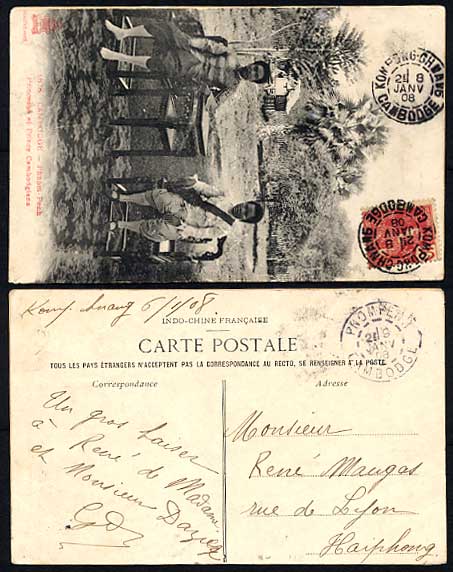 CAMBODGE - Phnom-Penh
Princesse et Prince Cambodgiens
KOMPONG-CHNANG
8
JANV
08
CAMBODGE
KOMPONG-CHNANG
8
JANV
08
CAMBODGE
Komp. chnang 6/1/08
INDO-CHINE FRANÇAISE
CARTE POSTALE
TOUS LES PAYS ÉTRANGERS N'ACCEPTENT PAS LA CORRESPONDANCE AU RECTO, SE RENSEIGNER A LA POSTE
PNOMPENH
8
JANV
CAMBODGE
Correspondance
Un gros baiser
à René de Madame
et Monsieur
GD
Adresse
Monsieur
René Maugas
rue de Lyon
Haiphong